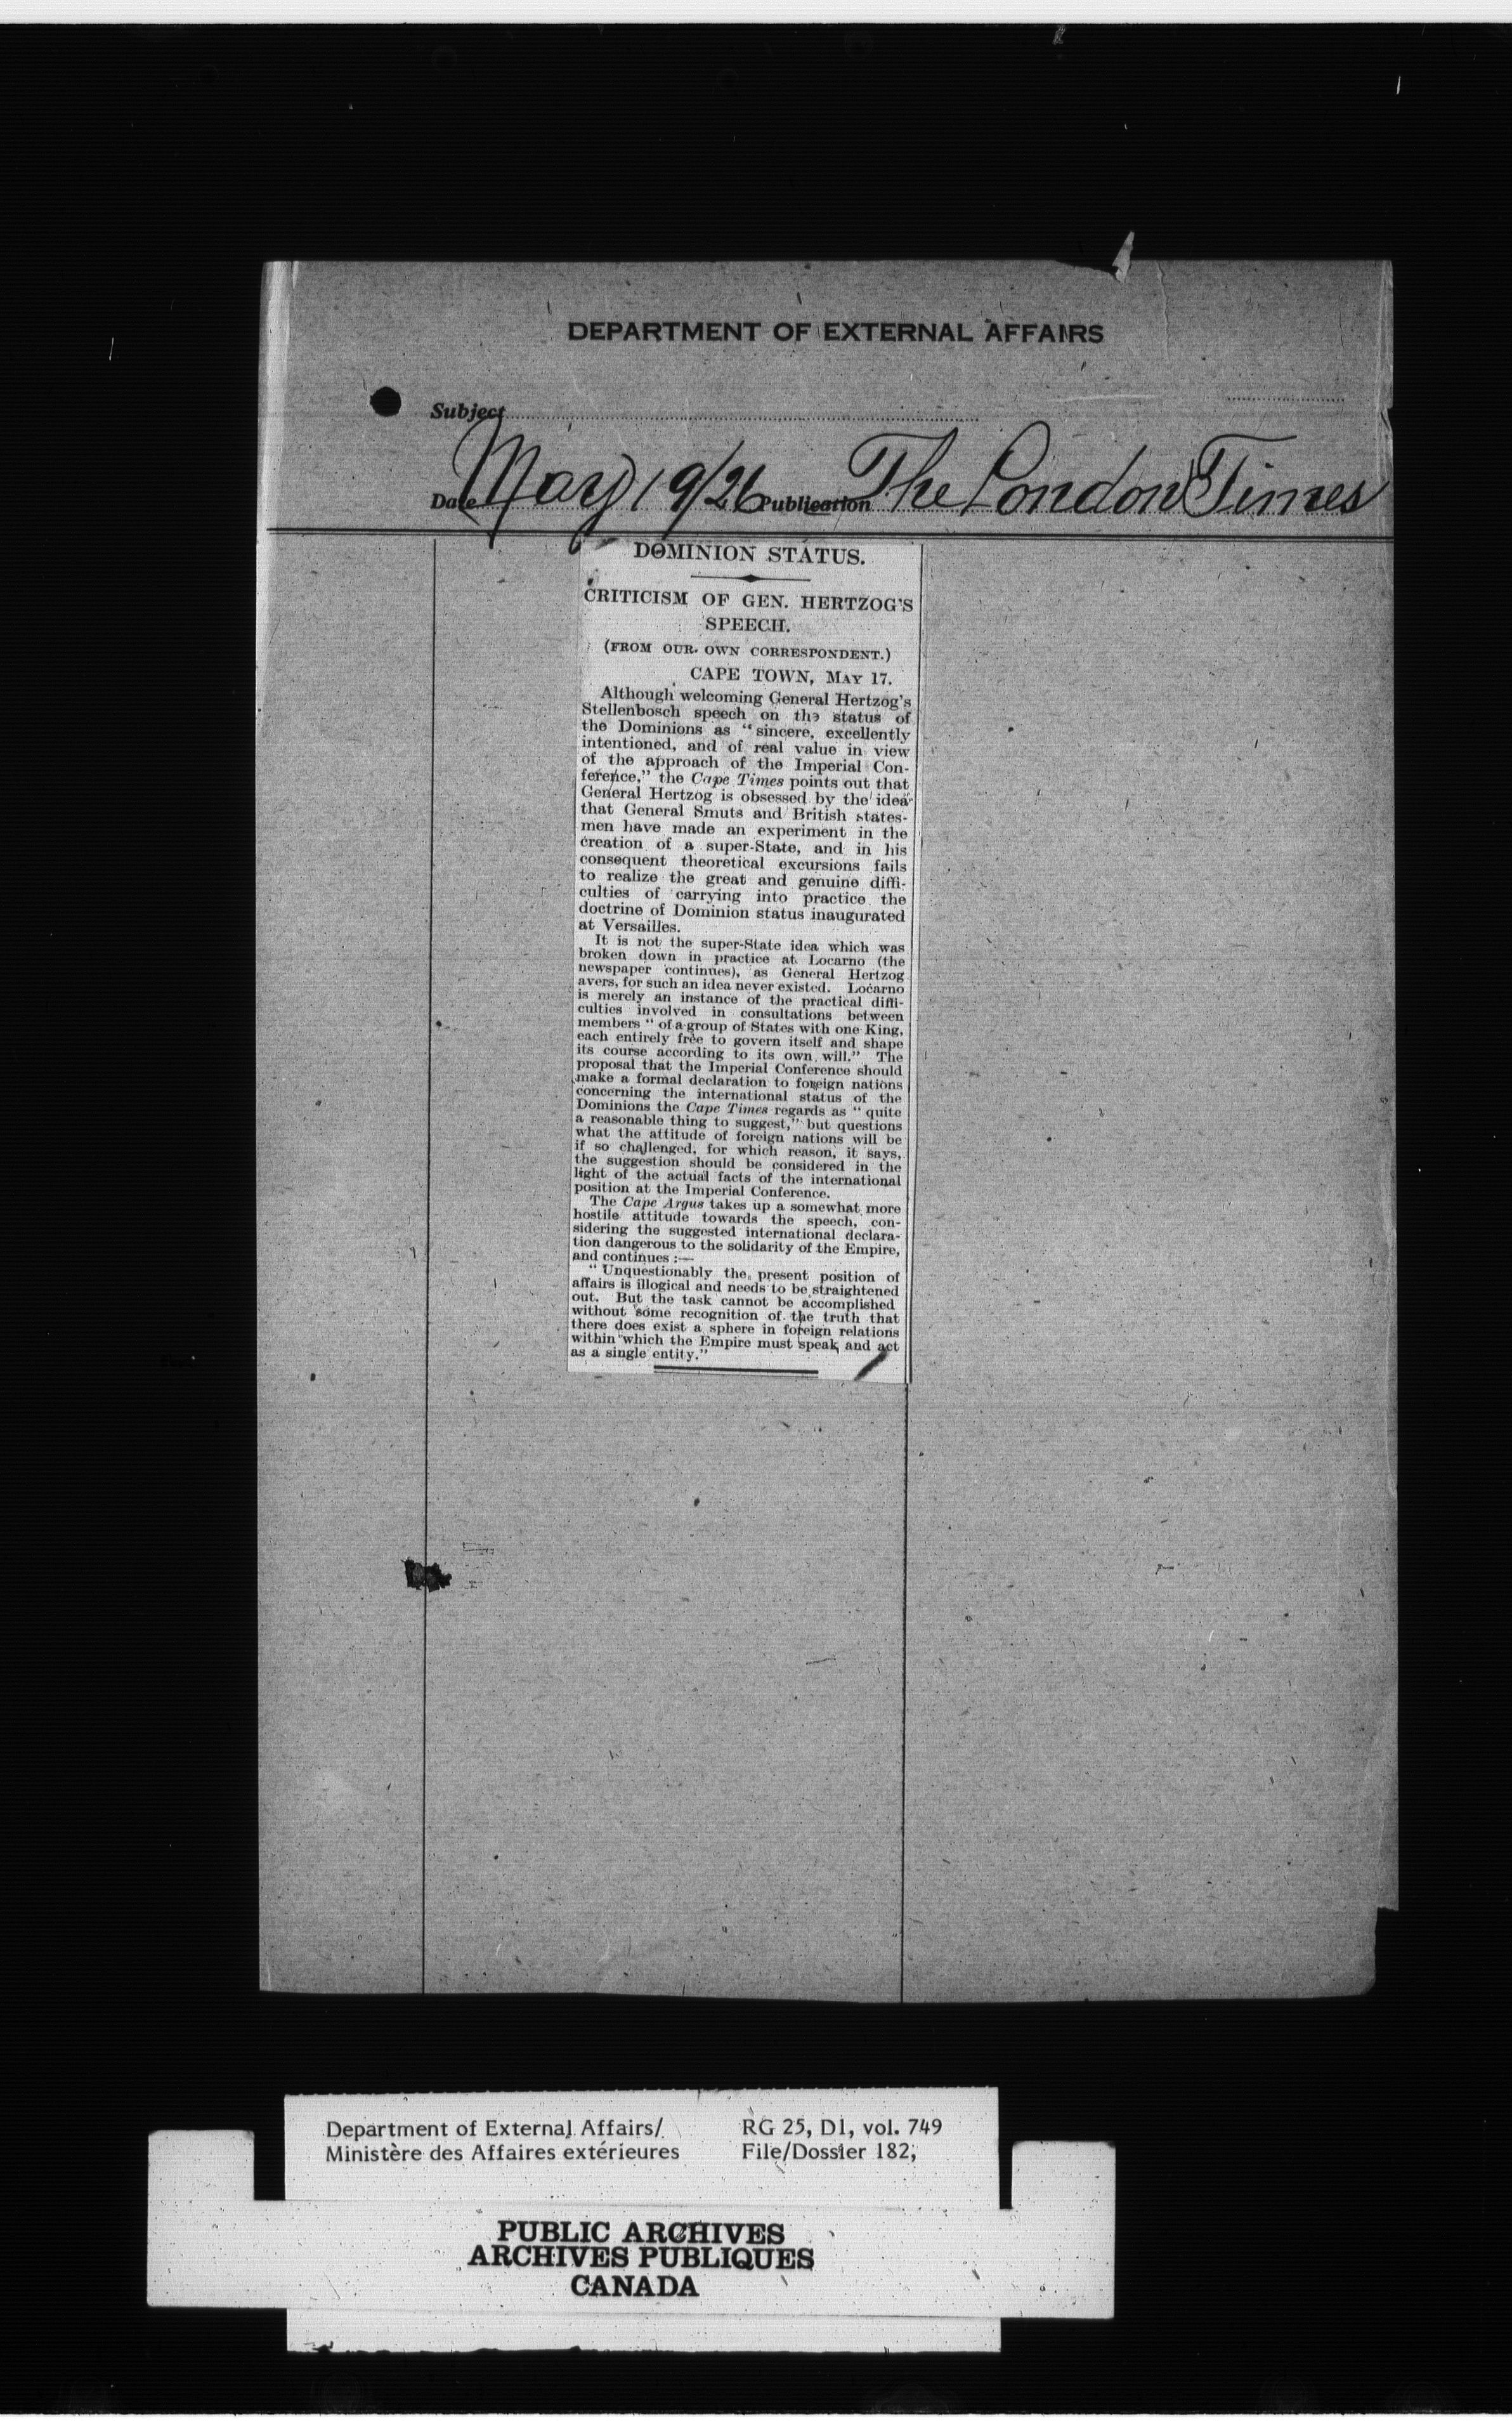 DEPARTMENT OF EXTERNAL AFFAIRS
Subject
Date May 19/26 Publication The London Times
DOMINION STATUS.
CRITICISM OF GEN. HERTZOG'S
SPEECH.
(FROM OUR OWN CORRESPONDENT.)
CAPE TOWN, MAY 17.
Although welcoming General Hertzog's
Stellenbosch speech on the status of
the Dominions as "sincere, excellently
intentioned, and of real value in view
of the approach of the Imperial Con-
ference," the Cape Times points out that
General Hertzog is obsessed by the idea
that General Smuts and British states-
men have made an experiment in the
creation of a super-State, and in his
consequent theoretical excursions fails
to realize the great and genuine diffi-
culties of carrying into practice the
doctrine of Dominion status inaugurated
at Versailles.
It is not the super-State idea which was
broken down in practice at Locarno (the
newspaper continues), as General Hertzog
avers, for such an idea never existed. Locarno
is merely an instance of the practical diffi-
culties involved in consultations between
members "of a group of States with one King,
each entirely free to govern itself and shape
its course according to its own will." The
proposal that the Imperial Conference should
make a formal declaration to foreign nations
concerning the international status of the
Dominions the Cape Times regards as "quite
a reasonable thing to suggest," but questions
what the attitude of foreign nations will be
if so challenged, for which reason, it says,
the suggestion should be considered in the
light of the actual facts of the international
position at the Imperial Conference.
The Cape Argus takes up a somewhat more
hostile attitude towards the speech, con-
sidering the suggested international declara-
tion dangerous to the solidarity of the Empire,
and continues:—
"Unquestionably the present position of
affairs is illogical and needs to be straightened
out. But the task cannot be accomplished
without some recognition of the truth that
there does exist a sphere in foreign relations
within which the Empire must speak and act
as a single entity."
Department of External Affairs/ RG 25, D1, vol. 749
Ministère des Affaires extérieures File/Dossier 182,
PUBLIC ARCHIVES
ARCHIVES PUBLIQUES
CANADA